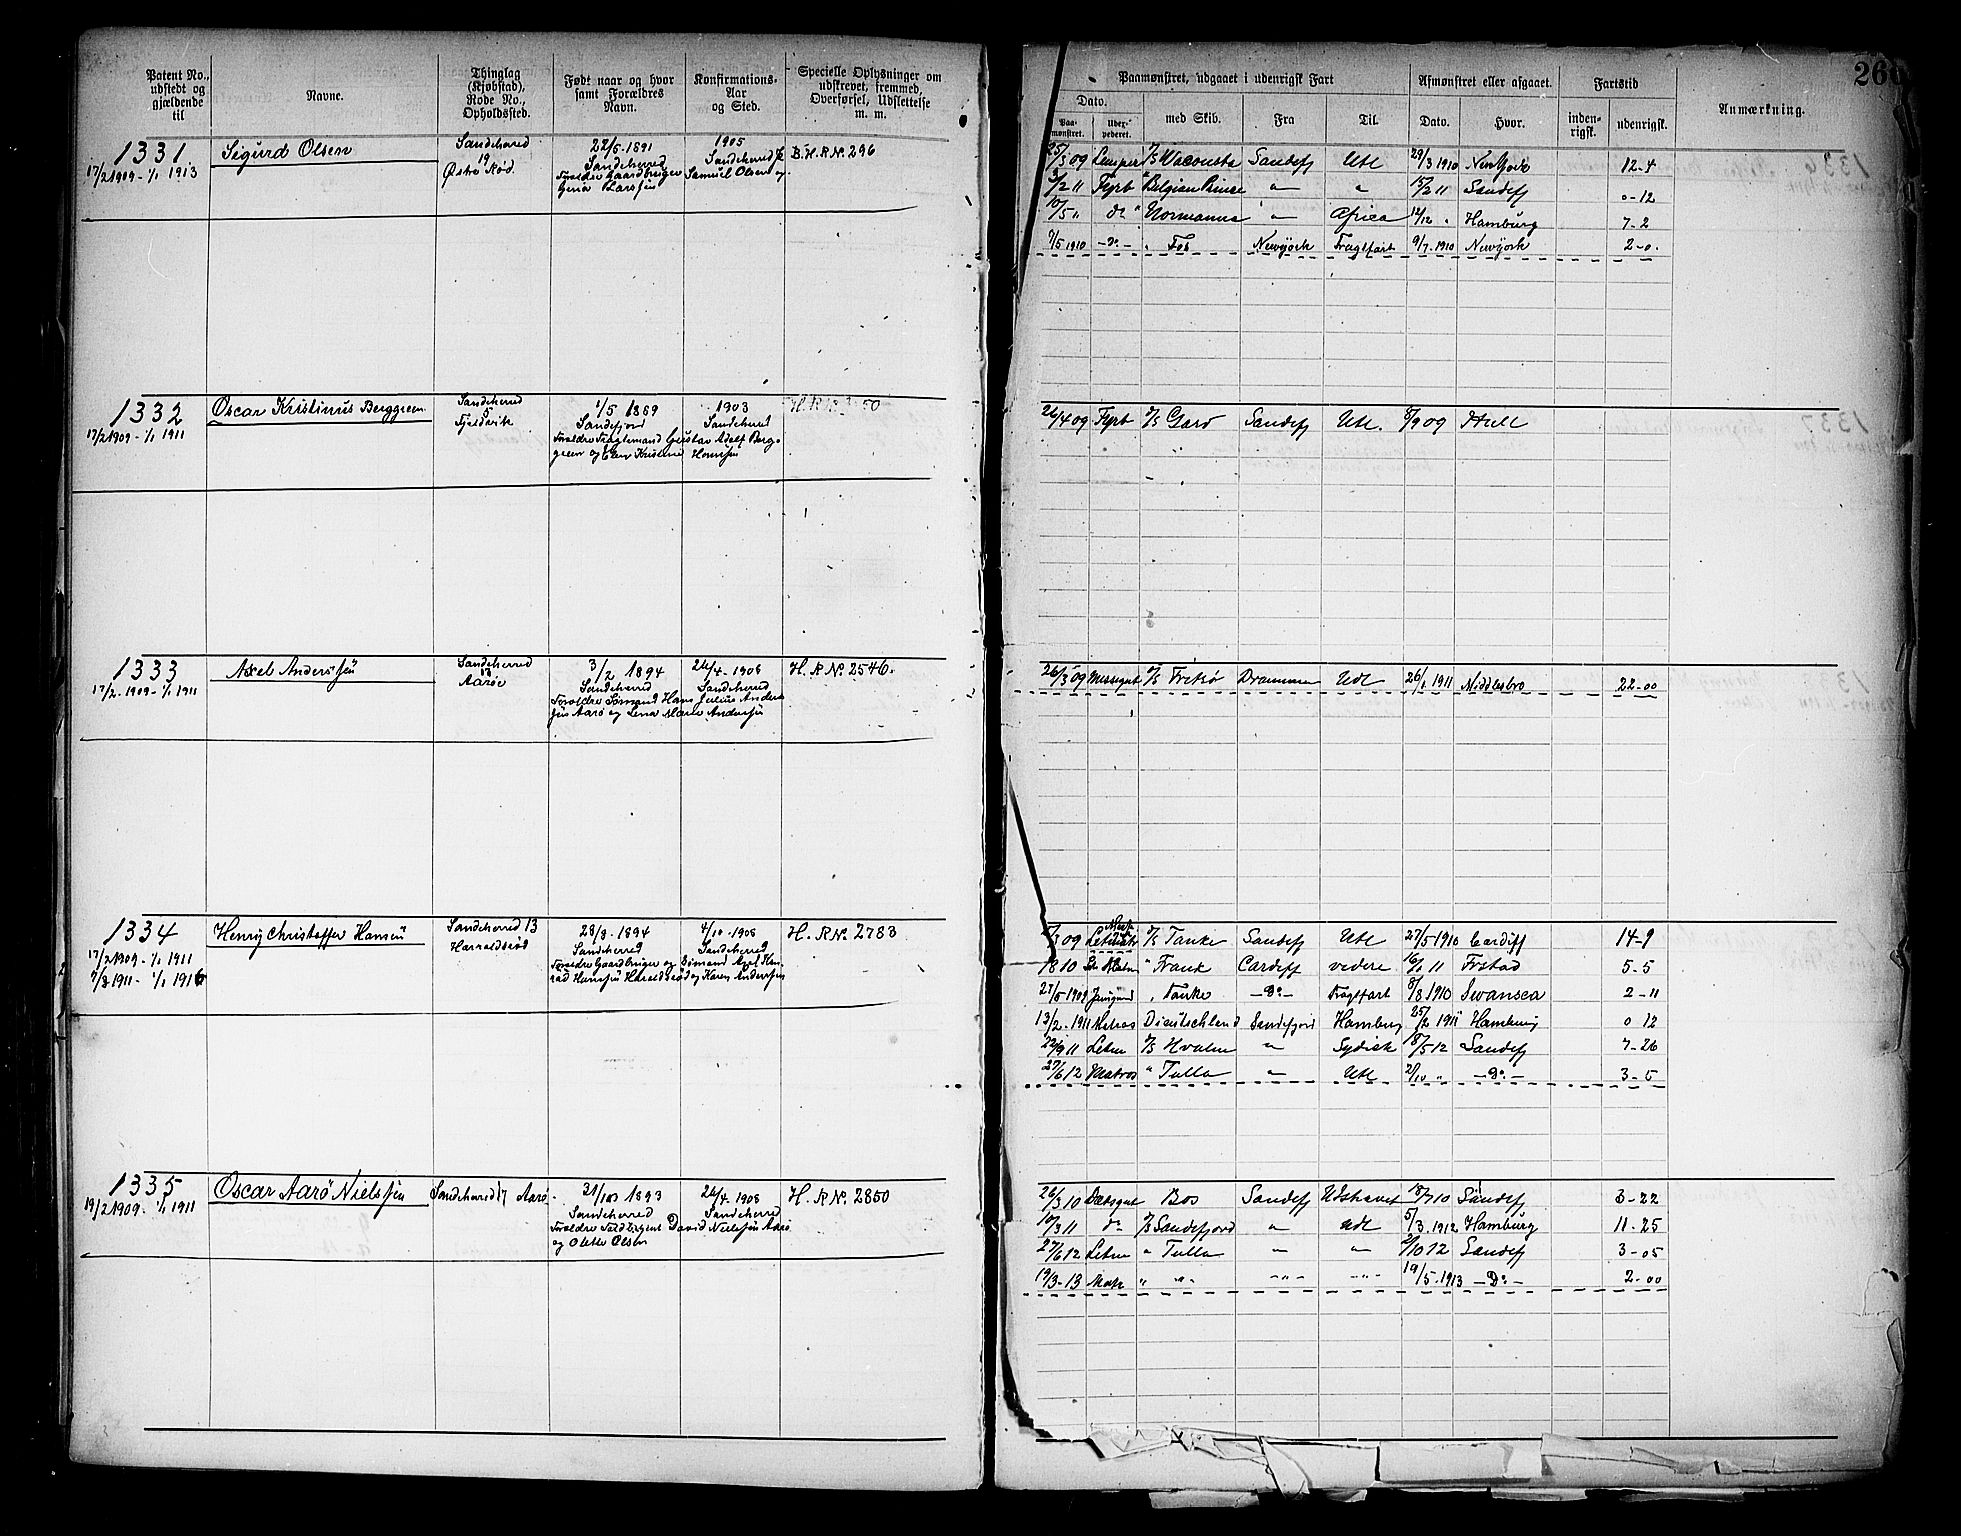 Patent No., udstedt og gjældende til
Navne.
Thinglag (Kjøbstad), Rode No., Opholdssted.
Født naar og hvor samt Forældres Navn.
Konfirmations-Aar og Sted.
Specielle Oplysninger om udskrevet, fremmed, Overførsel, Udslettelse m. m.
Paamønstret, udgaaet i udenrigsk Fart
Afmønstret eller afgaaet.
Fartstid
Anmærkning.
26
Dato.
Paa-mønstret.
med Skib.
Fra
Til.
Dato.
Hvor.
inden-rigsk.
udenrigsk.
1331 Sigurd Olsen
17/2 1909 - 1/1 1913
Sandeherred 19
22/5-1891 Sandeherred
1905 Sandeherred
B.H.R.N. 296
Samuel Olsen og
25/3 09 Lemper Waconsta Sandefj Utl 29/3 1910 NewYork 12-4
Fyrb Belgian Prince " " 15/2 11 Sandefj 0-12
10/5 " do " Normanna " Africa 12/12 " Hamburg 7-2
7/5 1910 - do - " Fos Newyork Fragtfart 9/7.1910 Newyork 2-0.
1332 Oscar Kristinus Berggreen
17/2 1909 - 1/1 1911
Sandeherred 5 Fjeldvik
1/5 1889 Sandefjord
1903 Sandeherred
Forældre Fragtemand Gustav Adolf Berg-
green og Elen Kristine Hansen
26/4 09 Fyrb Sandefj Utl. 8/9 09 Hull
1333 Axel Anderssen
17/2-1909 - 1/1 1911
Sandeherred 17 Aarøe
3/2 1894 Sandeherred
26/4-1908 Sandeherred
H.R.N. 2546.
Forældre Sømand Hans Julius Anders
sen Aarø og Lena Marie Andersen
26/3 09 Messegut Drammen Utl 26/1 1911 Middlesbro 22-00
1334 Henry Christoffer Hansen
17/2 1909 - 1/1 1911
1911 - 1/1 1916
Sandeherred 13
28/8-1894 Sandeherred
4/10-1908 Sandeherred
H. R.N. 2783
Forældre Gaardbruger og Sømand Axel Kon-
rad Hansen Haraldsrød og Karen Andersen
Tanke Sandefj Utl 27/5 1910 Cardiff 14-9
Frank Cardiff videre 16/1 11 Frstad 5-5
27/5 1909 Jungmd " Tanke - Do - Fragtfart 8/8 1910 Swansea 2-11
13/2-1911 Matros Dieutschland Sandefjord Hamburg 25/2 1911 Hamburg 0 12
22/9 11 Letm Hvalen " Sydisk 18/5 12 Sandefj 7-26
27/6 12 Matros " Tulla " Utl 2/10 " - Do - 3-5
1335 Oscar Aarø Nielssen
19/2 1909 - 1/1 1911
Sandeherred 17 Aarø
1893 Sandeherred
26/4-1908 Sandeherred
H. R.N. 2850
David Nielsen Aarø
og Olette Olsen
26/3 10 Dæksgut Bos Sandefj Udshavet 18/7 10 Sandefj 3-22
10/3 11 do Sandefjord " Udl 5/3.1912 Hamburg 11-25
27/6 12 Letm " Tulla " " 2/10 12 Sandefj 3-05
19/3-13 Matr " " " " 19/5.1913 - Do - 2-00